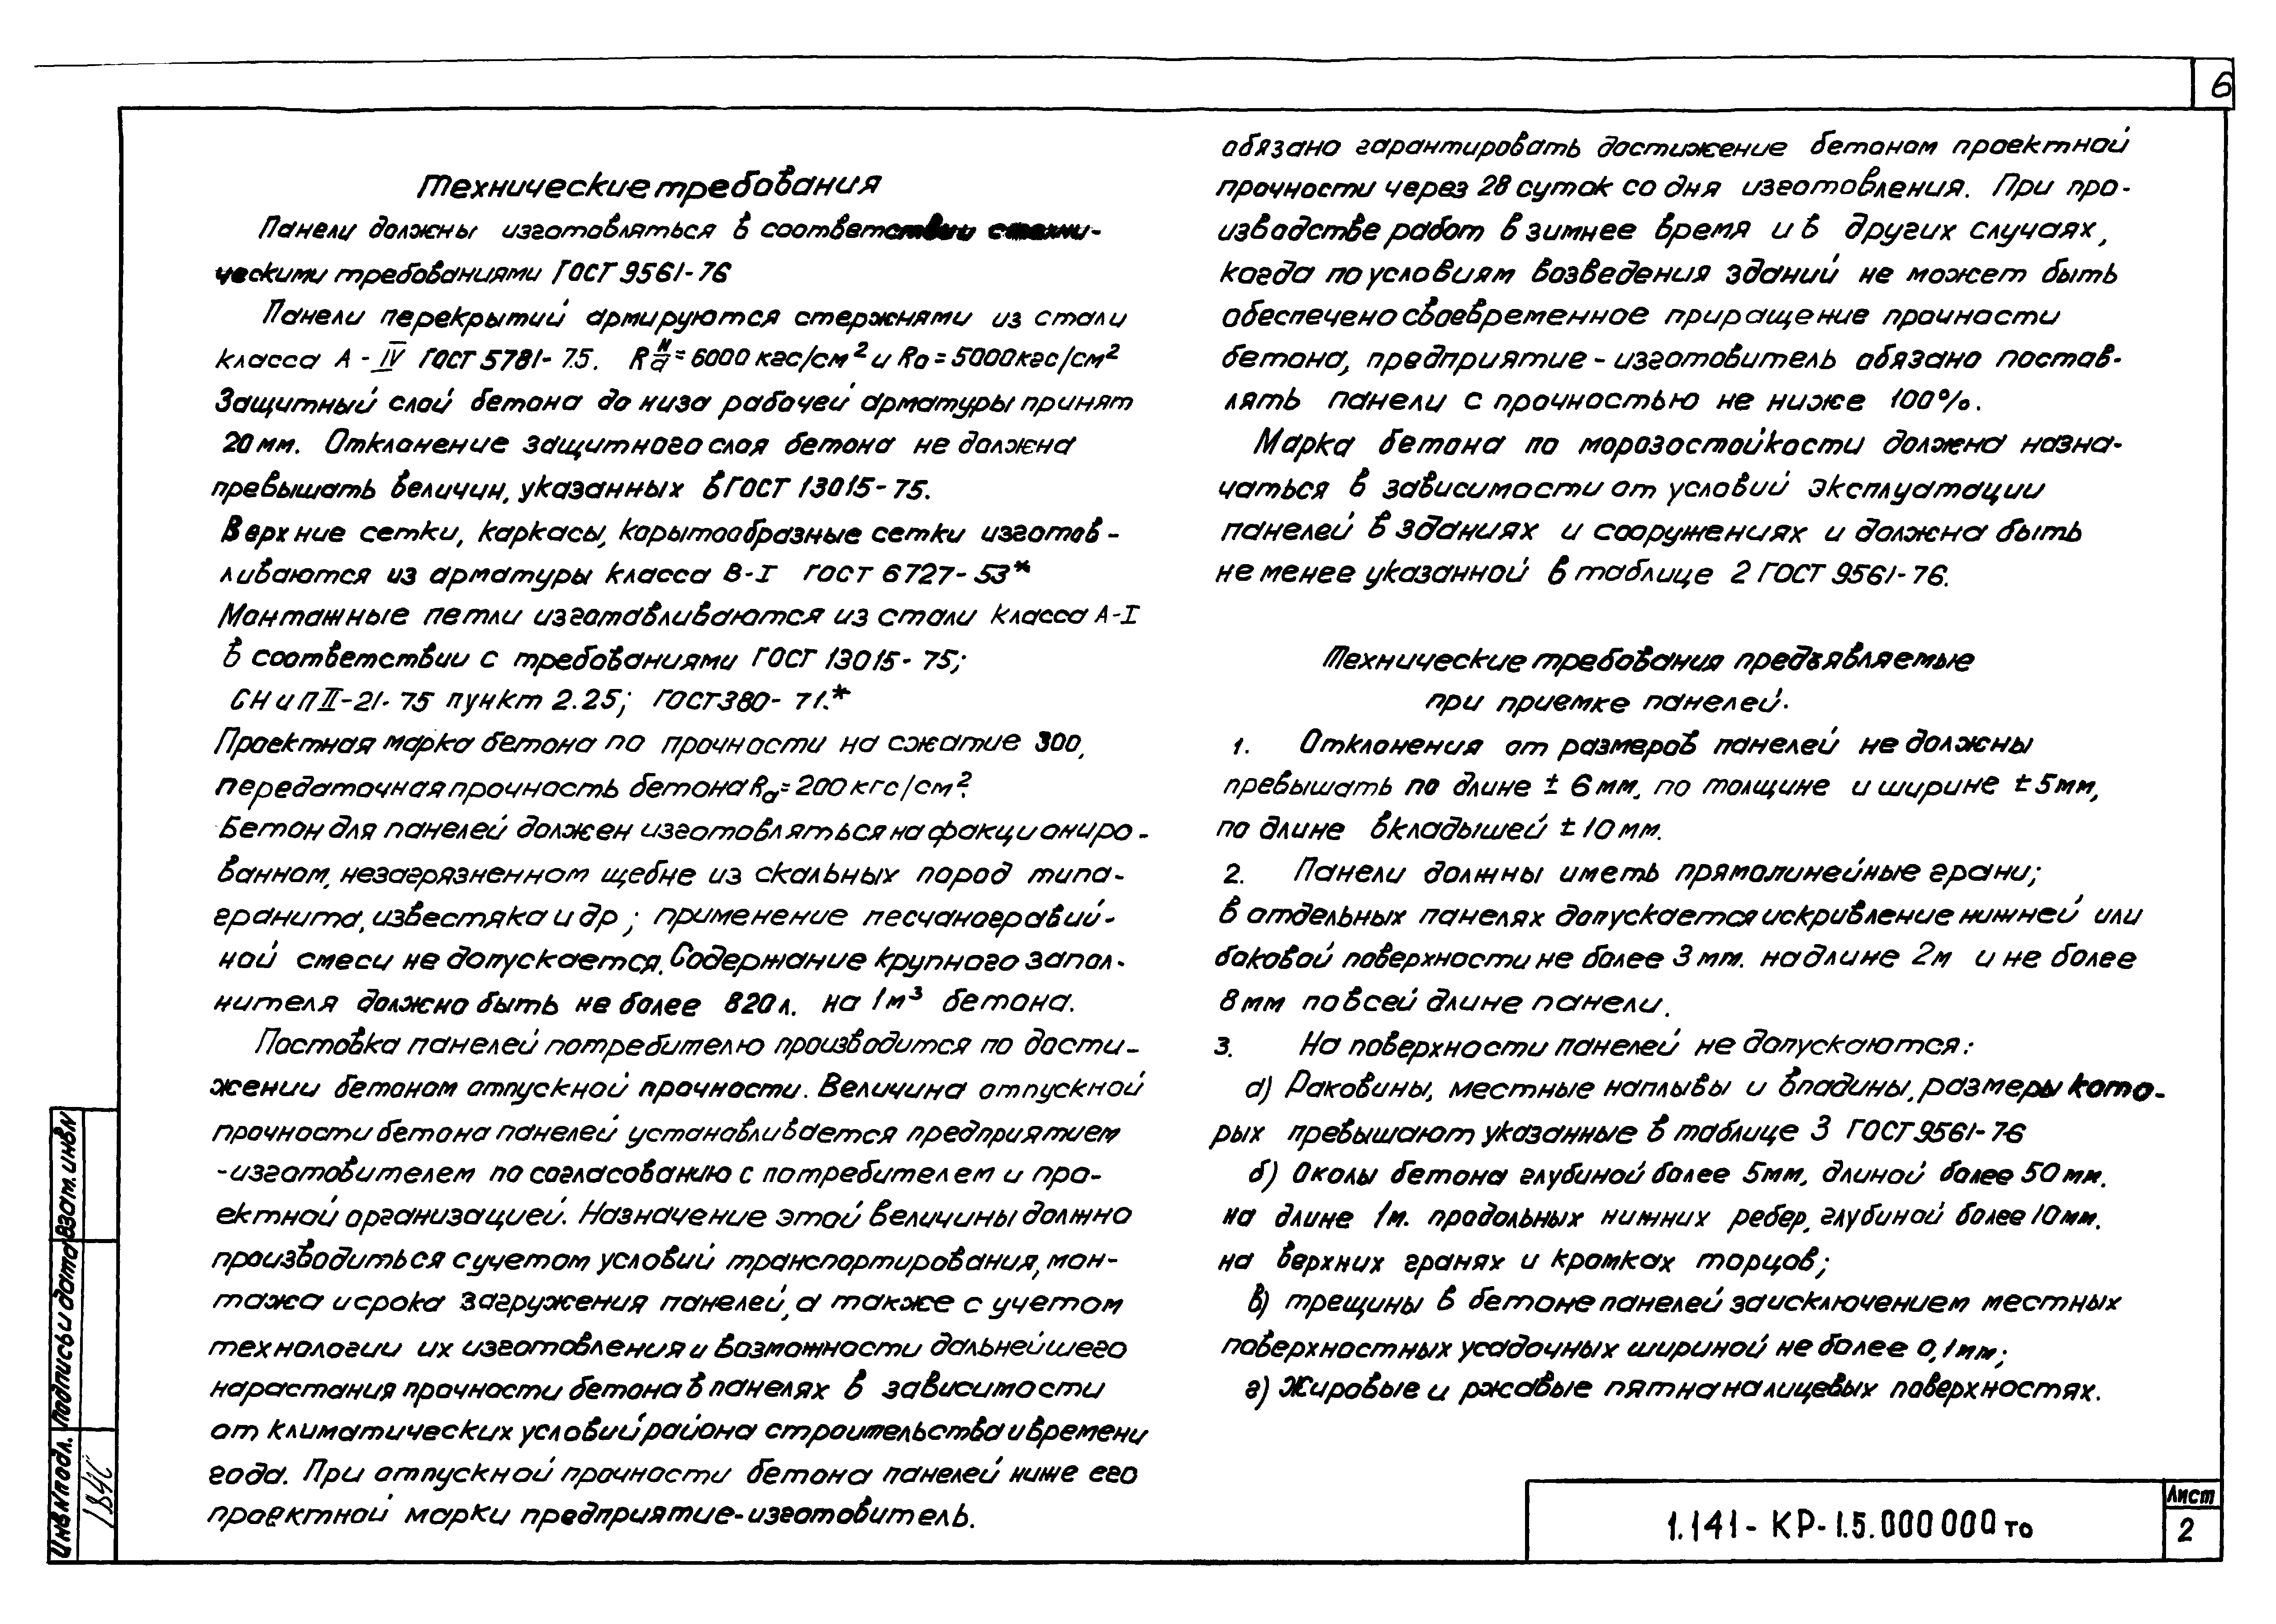 6
Технические требования
Панели должны изготовляться в соответствии с техни-
ческими требованиями ГОСТ 9561-76
Панели перекрытий армируются стержнями из стали
класса А-IV ГОСТ 5781-75. Rᴺа=6000 кгс/см² и Rа=5000кгс/см²
Защитный слой бетона до низа рабочей арматуры принят
20мм. Отклонение защитного слоя бетона не должна
превышать величин, указанных в ГОСТ 13015-75.
Верхние сетки, каркасы, корытообразные сетки изготов-
ливаются из арматуры класса В-I ГОСТ 6727-53*
Монтажные петли изготавливаются из стали класса А-I
в соответствии с требованиями ГОСТ 13015-75;
СНиП II-21-75 пункт 2.25; ГОСТ380-71.*
Проектная марка бетона по прочности на сжатие 300,
передаточная прочность бетона Rо=200кгс/см².
Бетон для панелей должен изготовляться на факциониро-
ванном, незагрязненном щебне из скальных пород типа-
гранита, известяка и др; применение песчаногравий-
ной смеси не допускается. Содержание крупного запол-
нителя должно быть не более 820л. на 1м³ бетона.
Поставка панелей потребителю производится по дости-
жении бетоном отпускной прочности. Величина отпускной
прочности бетона панелей устанавливается предприятием
-изготовителем по согласованию с потребителем и про-
ектной организацией. Назначение этой величины должно
производиться с учетом условий транспортирования, мон-
тажа и срока загружения панелей, а также с учетом
технологии их изготовления и возможности дальнейшего
нарастания прочности бетона в панелях в зависимости
от климатических условий района строительства и времени
года. При отпускной прочности бетона панелей ниже его
проектной марки предприятие-изготовитель.
обязано гарантировать достижение бетоном проектной
прочности через 28 суток со дня изготовления. При про-
изводстве работ в зимнее время и в других случаях,
когда по условиям возведения зданий не может быть
обеспечено своевременное приращение прочности
бетона, предприятие-изготовитель обязано постав-
лять панели с прочностью не ниже 100%.
Марка бетона по морозостойкости должна назна-
чаться в зависимости от условий эксплуатации
панелей в зданиях и сооружениях и должна быть
не менее указанной в таблице 2 ГОСТ 9561-76.
Технические требования предъявляемые
при приемке панелей.
1. Отклонения от размеров панелей не должны
превышать по длине ± 6мм, по толщине и ширине ±5мм,
по длине вкладышей ±10мм.
2. Панели должны иметь прямолинейные грани;
в отдельных панелях допускается искривление нижней или
боковой поверхности не более 3мм. на длине 2м и не более
8мм по всей длине панели.
3. На поверхности панелей не допускаются:
а) Раковины, местные наплывы и впадины, размеры кото-
рых превышают указанные в таблице 3 ГОСТ9561-76
б) Околы бетона глубиной более 5мм, длиной более 50мм.
на длине 1м. продольных нижних ребер, глубиной более 10мм.
на верхних гранях и кромках торцов;
в) трещины в бетоне панелей за исключением местных
поверхностных усадочных шириной не более 0,1мм;
г) Жировые и ржавые пятна на лицевых поверхностях.
Инв№подл. Подписьи дата Взам.инв№
1.141-КР-1.5.000 000 то
Лист
2